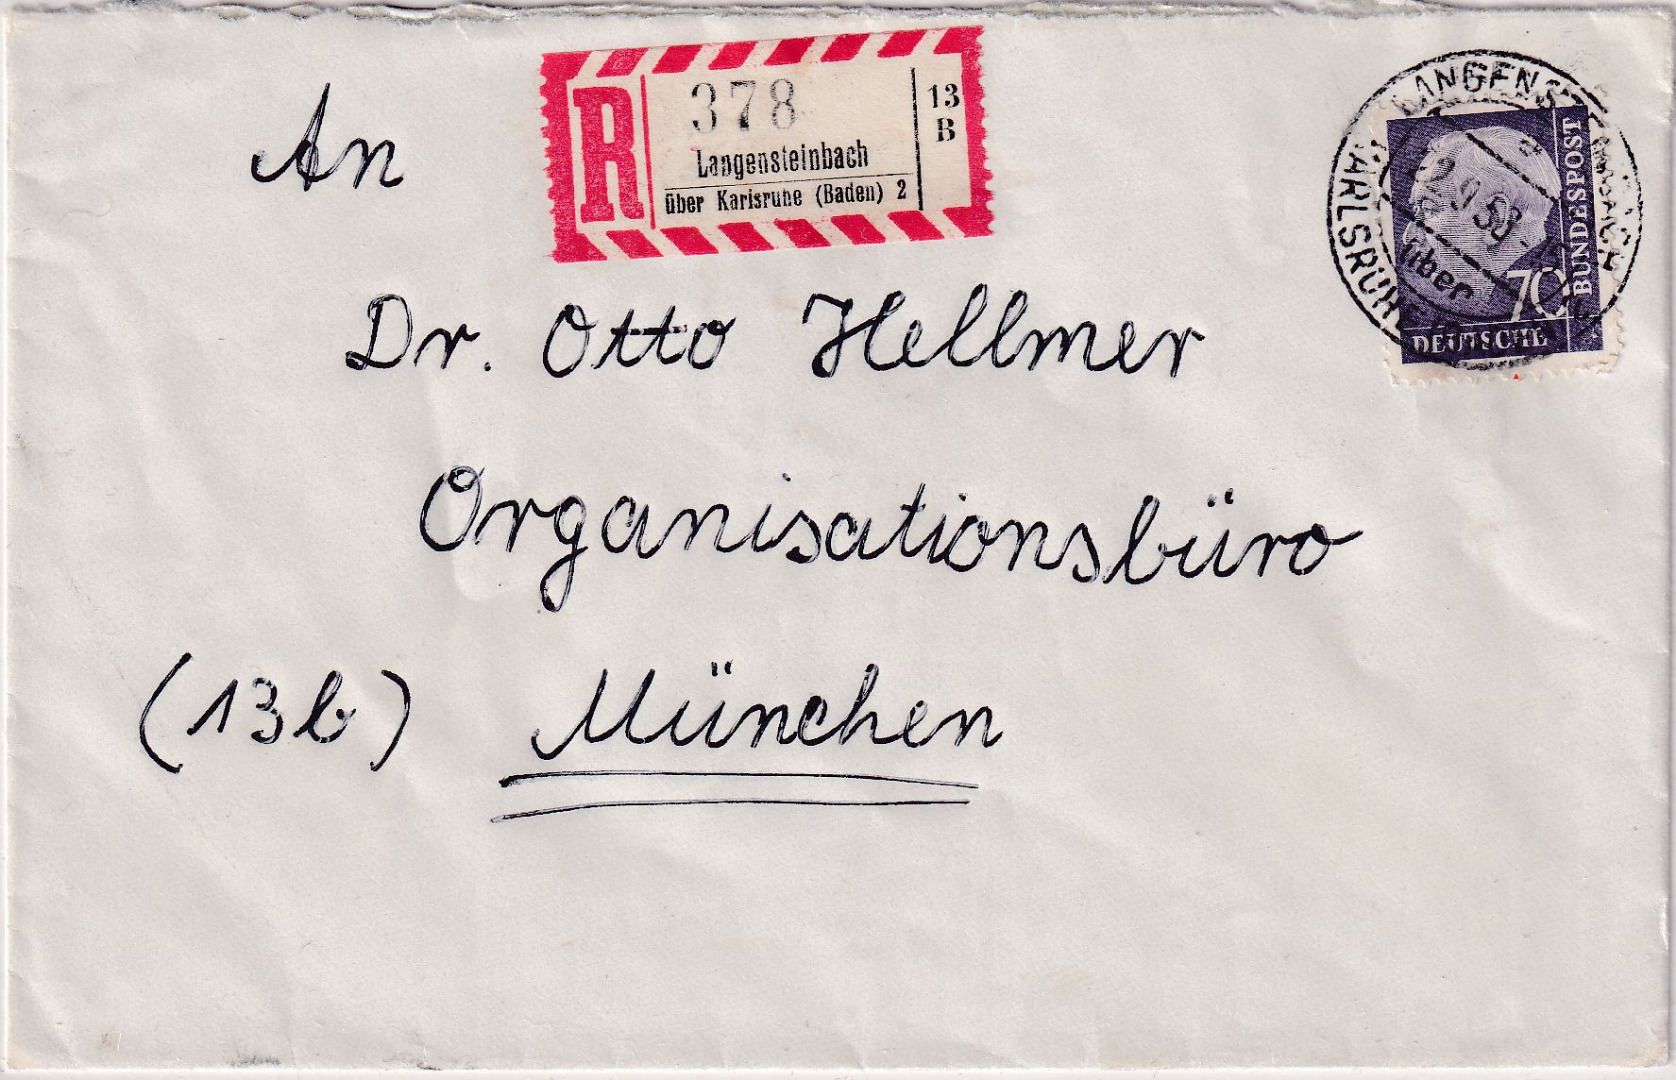 An
R
378
Langensteinbach
über Karlsruhe (Baden) 2
13
B
22.9.58
über
KARLSRUHE
70
BUNDESPOST
DEUTSCHE
Dr. Otto Hellmer
Organisationsbüro
(13b) München